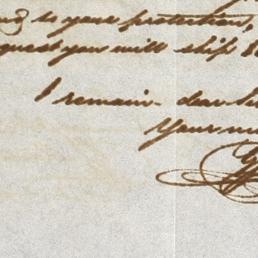 to your protection,
request you will ship
I remain - dear Sir
Your m